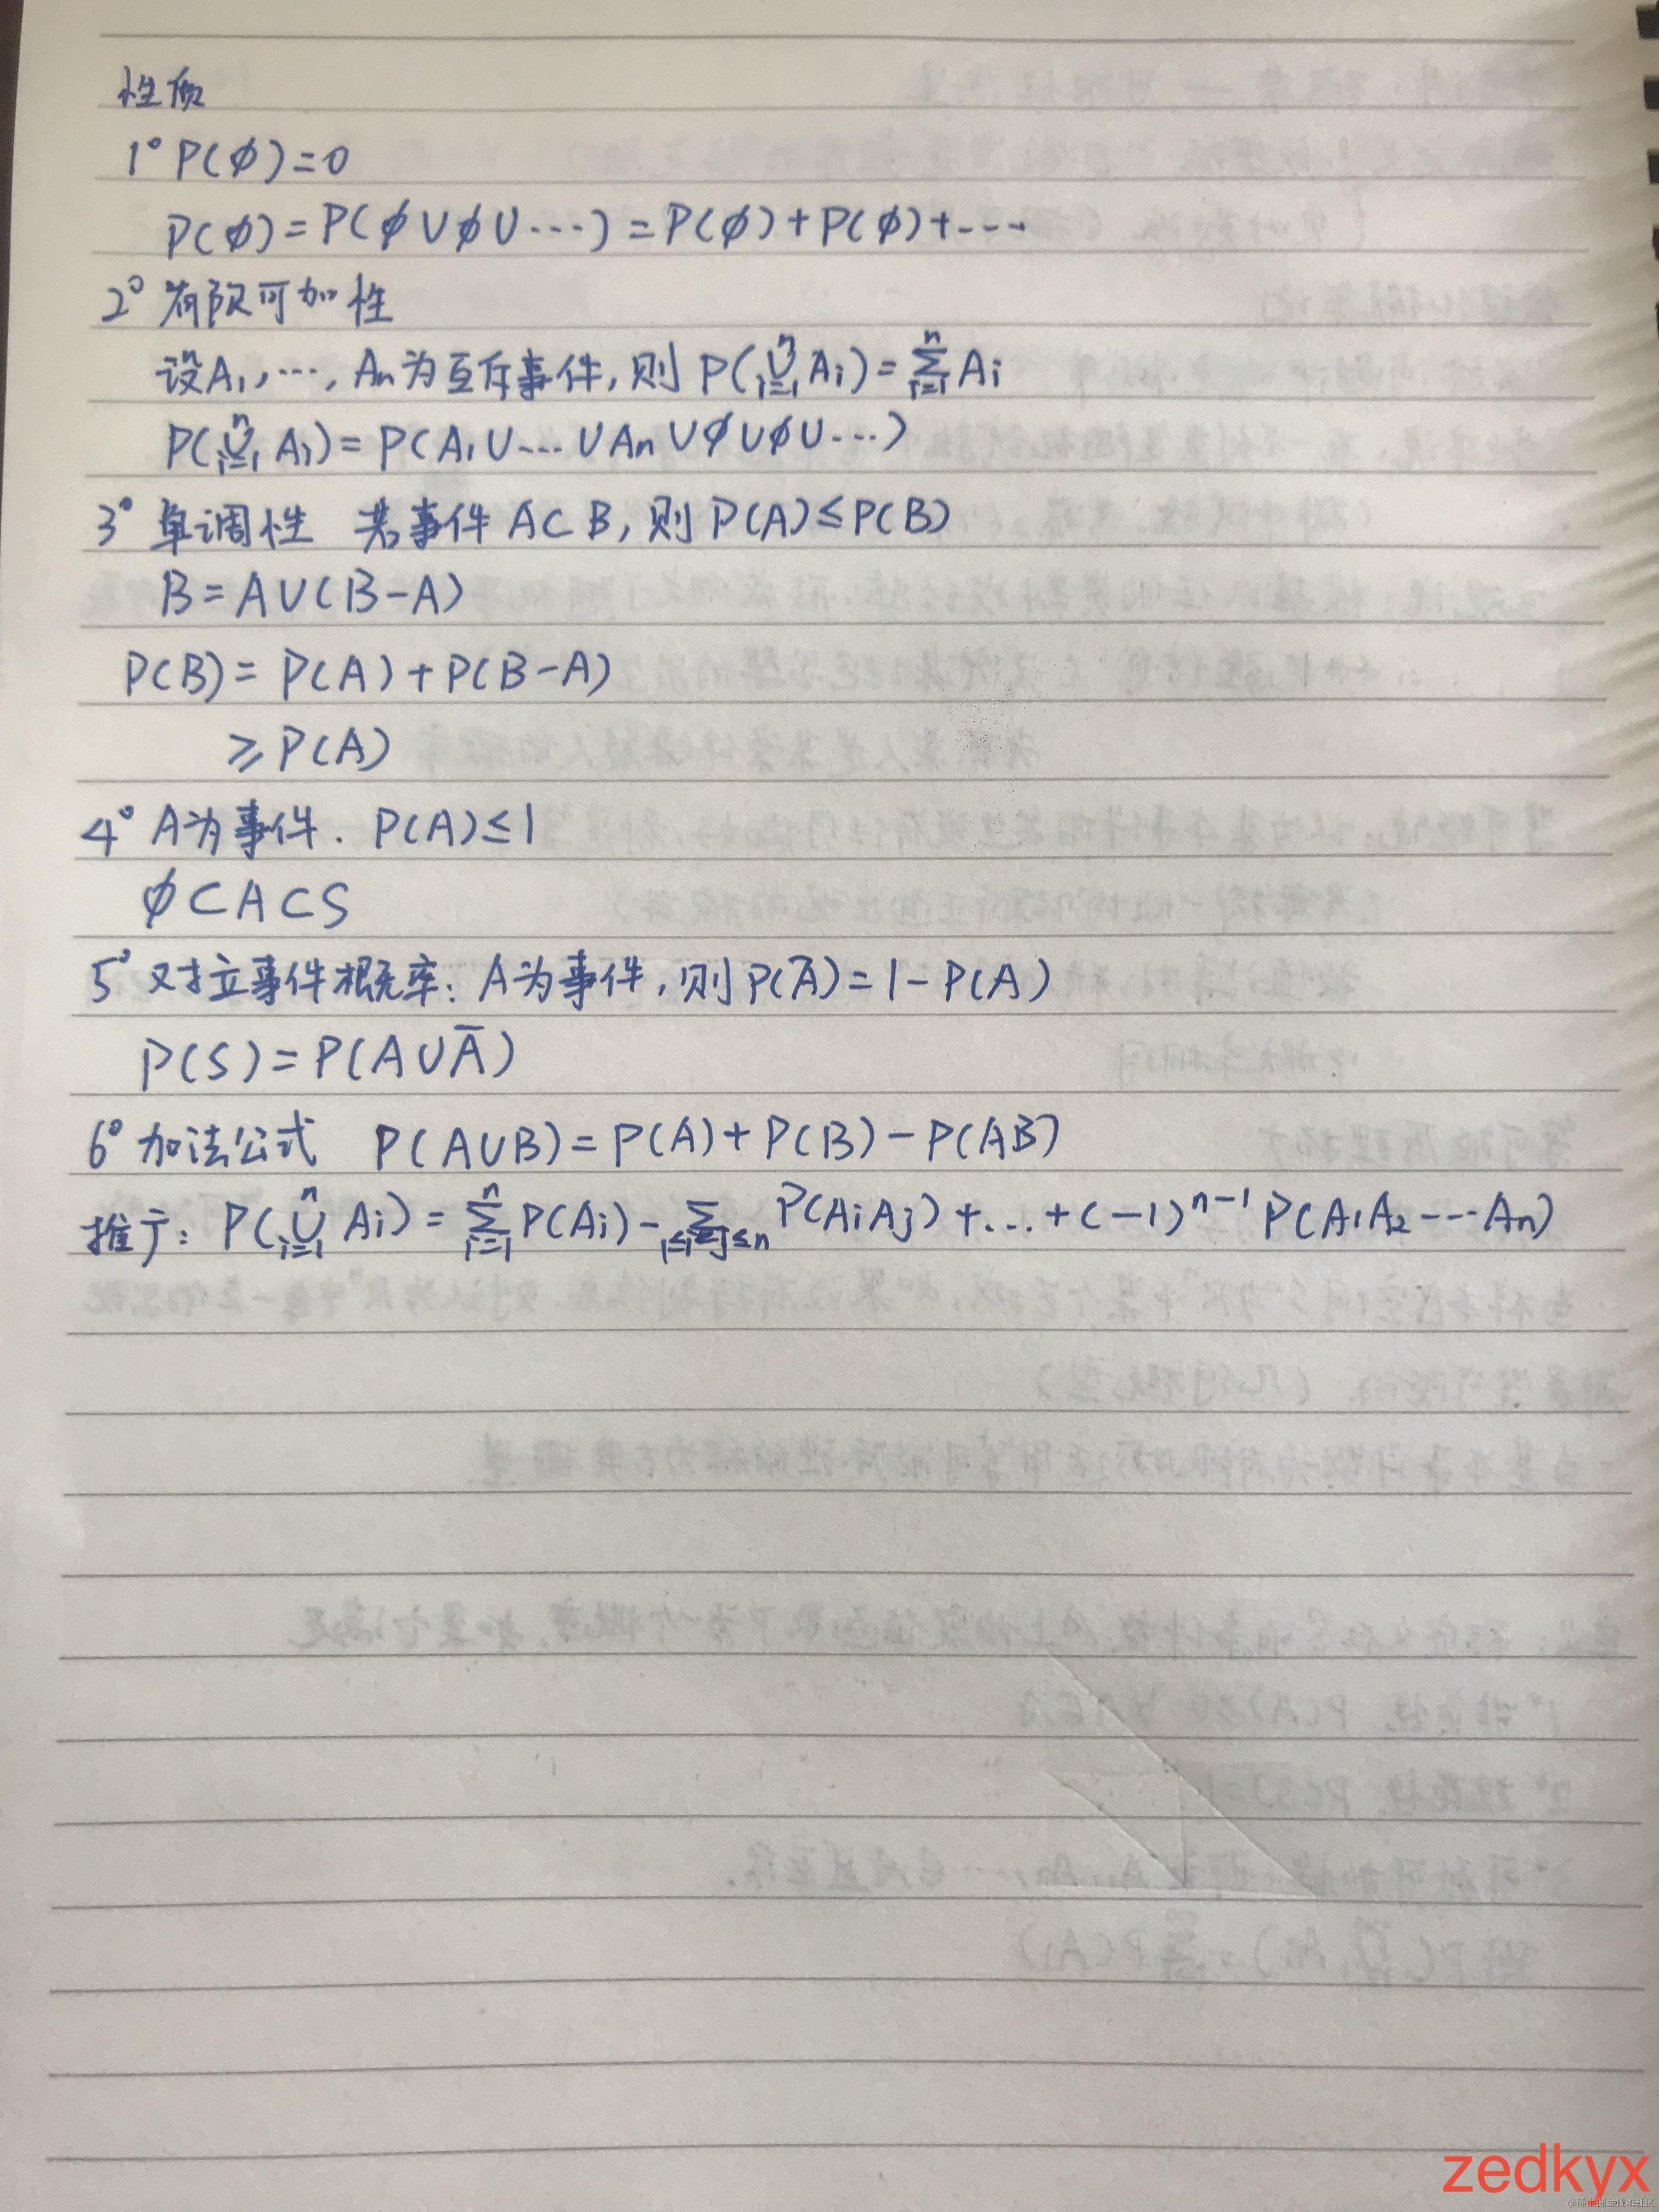 性质
1° P(∅)=0
P(∅)=P(∅∪∅∪···)=P(∅)+P(∅)+---
2° 有限可加性
设A₁,···,Aₙ为互斥事件,则 P(⋃ⁿᵢ₌₁ Aᵢ)=∑ⁿᵢ₌₁ Aᵢ
P(⋃ⁿᵢ₌₁ Aᵢ)=P(A₁∪...∪Aₙ∪∅∪∅∪···)
3° 单调性 若事件 A⊂B,则 P(A)≤P(B)
B=A∪(B-A)
P(B)=P(A)+P(B-A)
≥P(A)
4° A为事件. P(A)≤1
∅⊂A⊂S
5° 对立事件概率: A为事件,则P(Ā)=1-P(A)
P(S)=P(A∪Ā)
6° 加法公式 P(A∪B)=P(A)+P(B)-P(AB)
推广: P(⋃ⁿᵢ₌₁ Aᵢ)=∑ⁿᵢ₌₁ P(Aᵢ)-∑ P(AᵢAⱼ)+...+(-1)ⁿ⁻¹ P(A₁A₂---Aₙ)
zedkyx
@稀土掘金技术社区